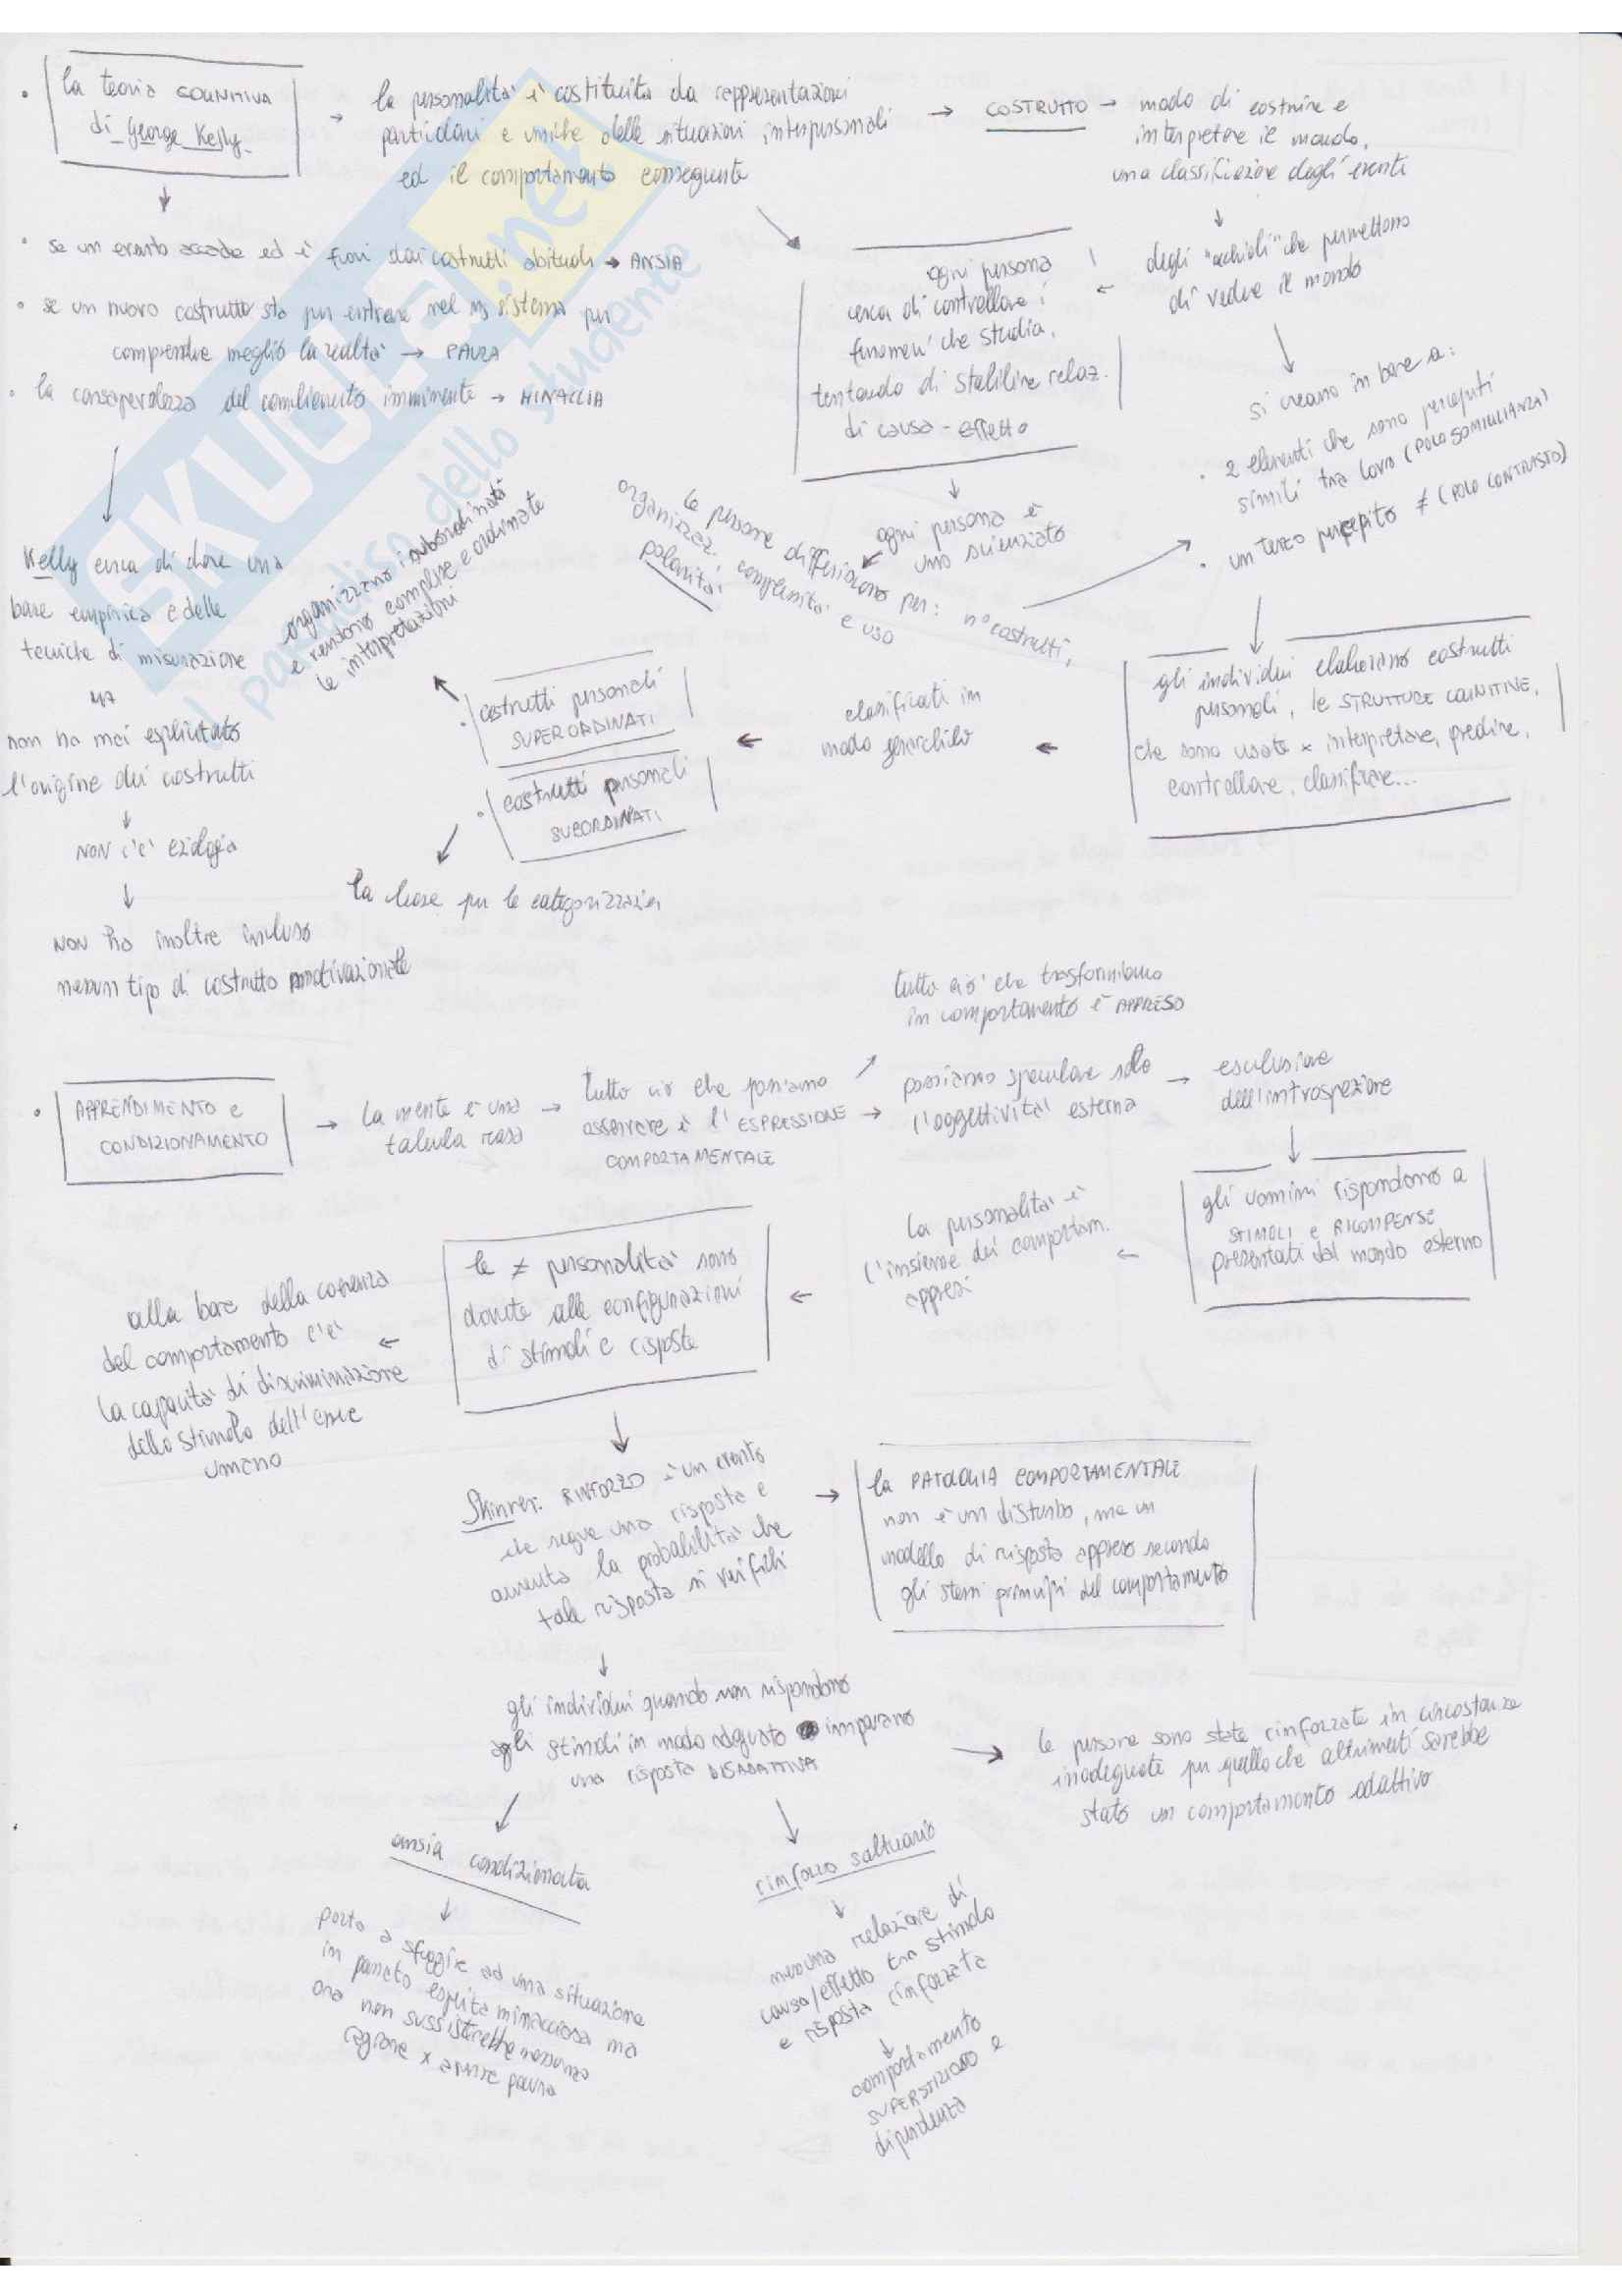 la teoria COGNITIVA
di George Kelly
→ la personalità è costituita da rappresentazioni
particolari e uniche delle situazioni interpersonali
ed il comportamento conseguente
→ COSTRUTTO → modo di costruire e
interpretare il mondo,
una classificazione degli eventi
degli "occhiali" che permettono
di vedere il mondo
si creano in base a:
· 2 elementi che sono percepiti
simili tra loro (POLO SOMIGLIANZA)
· un terzo percepito ≠ (POLO CONTRASTO)
ogni persona
cerca di controllare i
fenomeni che studia,
tentando di stabilire relaz.
di causa-effetto
ogni persona è
uno scienziato
le persone differiscono per: n° costrutti,
organizzaz., complessità e uso
polarità
· se un evento accade ed è fuori dai costrutti abituali → ANSIA
· se un nuovo costrutto sta per entrare nel ns sistema per
comprendere meglio la realtà → PAURA
· la consapevolezza del cambiamento imminente → MINACCIA
Kelly cerca di dare una
base empirica e delle
tecniche di misurazione
MA
non ha mai esplicitato
l'origine dei costrutti
NON c'è eziologia
NON ha inoltre incluso
nessun tipo di costrutto motivazionale
gli individui elaborano costrutti
personali, le STRUTTURE COGNITIVE,
che sono usate x interpretare, predire,
controllare, classificare...
classificati in
modo gerarchico
· costrutti personali
SUPERORDINATI
organizzano i subordinati
e rendono complesse e ordinate
le interpretazioni
· costrutti personali
SUBORDINATI
la base per le categorizzazioni
· APPRENDIMENTO e
CONDIZIONAMENTO
→ la mente è una
tabula rasa
→ tutto ciò che possiamo
osservare è l'ESPRESSIONE
COMPORTAMENTALE
tutto ciò che trasformiamo
in comportamento è APPRESO
→ possiamo speculare solo
l'oggettività esterna
→ esclusione
dell'introspezione
gli uomini rispondono a
STIMOLI e RICOMPENSE
presentati dal mondo esterno
la personalità è
l'insieme dei comportam.
appresi
le ≠ personalità sono
dovute alle configurazioni
di stimoli e risposte
alla base della coerenza
del comportamento c'è
la capacità di discriminazione
dello stimolo dell'essere
umano
Skinner: RINFORZO è un evento
che segue una risposta e
aumenta la probabilità che
tale risposta si verifichi
→ la PATOLOGIA COMPORTAMENTALE
non è un disturbo, ma un
modello di risposta appreso secondo
gli stessi principi del comportamento
gli individui quando non rispondono
agli stimoli in modo adeguato imparano
una risposta DISADATTIVA
le persone sono state rinforzate in circostanze
inadeguate per quello che altrimenti sarebbe
stato un comportamento adattivo
ansia condizionata
porta a sfuggire ad una situazione
in passato esperita minacciosa ma
ora non sussisterebbe nessuna
ragione x avere paura
rinforzo saltuario
nessuna relazione di
causa/effetto tra stimolo
e risposta rinforzata
comportamento
SUPERSTIZIOSO e
dipendenza
SKUOLA.net
il paradiso dello studente